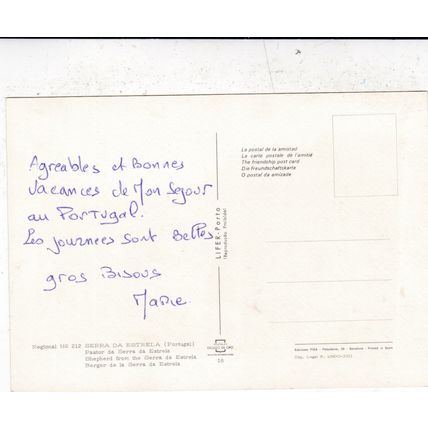 Agreables et Bonnes
Vacances de Mon Sejour
au Portugal.
Les journees sont Belles.
gros Bisous
Marie
Regional 16 C 212 SERRA DA ESTRELA (Portugal)
Pastor da Serra da Estrela
Shepherd from the Serra da Estrela
Berger de la Serra da Estrela
LIFER - Porto
(Reprodução Proibida)
16
La postal de la amistad
La carte postale de l'amitié
The friendship post card
Die Freundschaftskarte
O postal da amizade
Printed in Spain